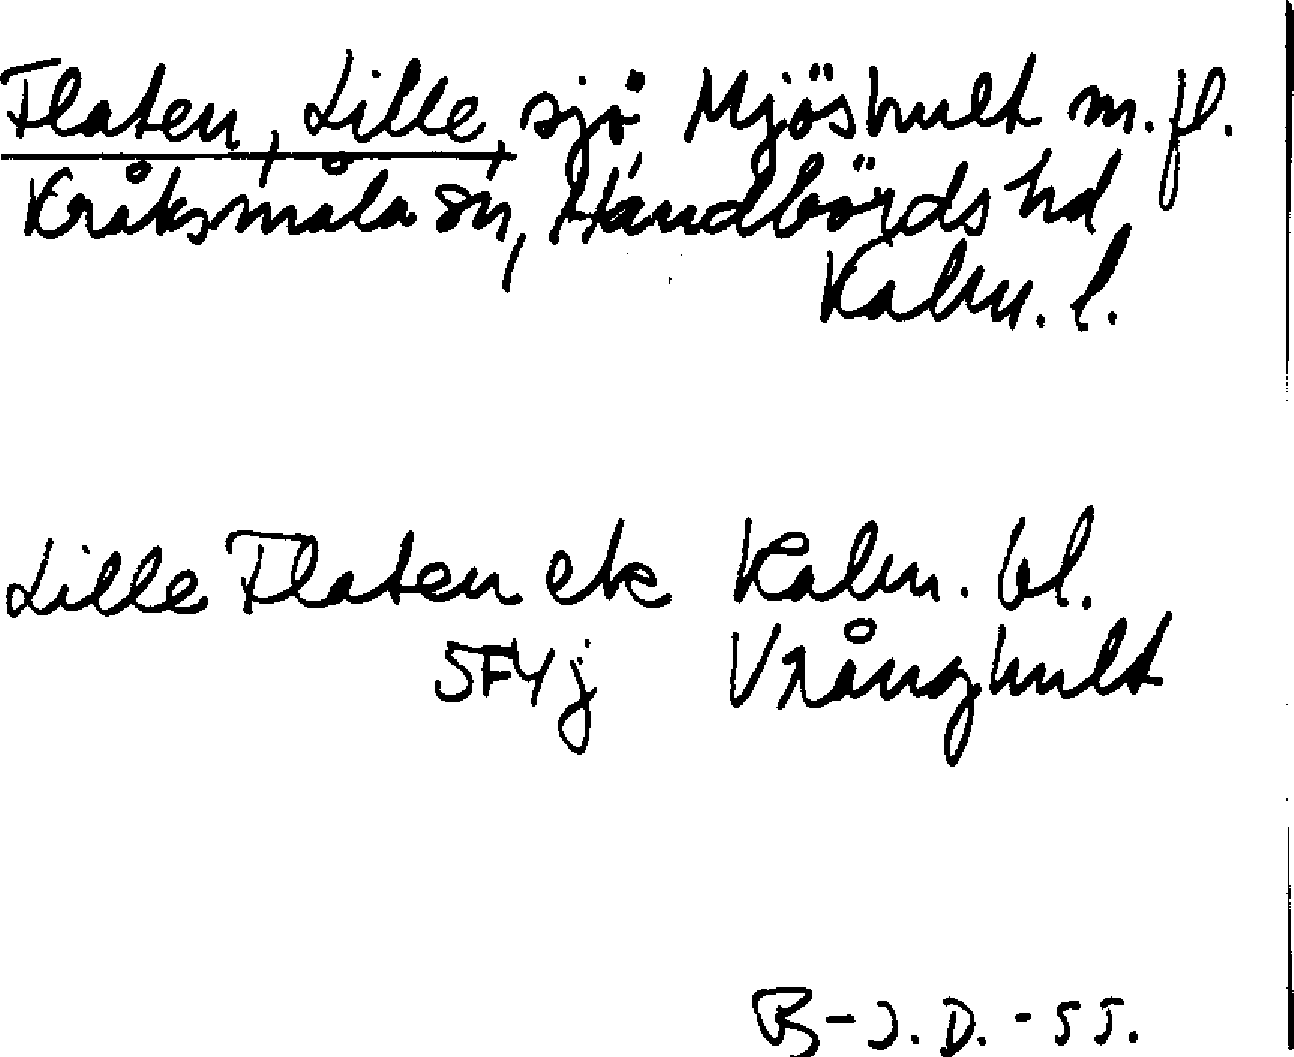 Flaten, Lille, sjö Mjöshult m. fl.
Kråksmåla sn, Handbörds hd
Kalm. l.
Lille Flaten ek Kalm. bl.
5F4j Vrånghult
B-J.D. -55.